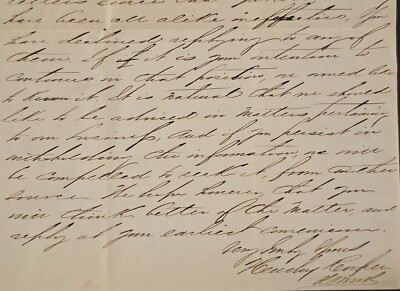 letters
have been all alike ineffective, you
have declined replying to any of
them. If it is your intention to
continue in that position, we would like
to know it. It is natural that we should
like to be advised in matters pertaining
to our business, and if you persist in
withholding the information, we will
be compelled to seek it from another
source. We hope however that you
will think better of the matter, and
reply at your earliest convenience.
Very truly Yours